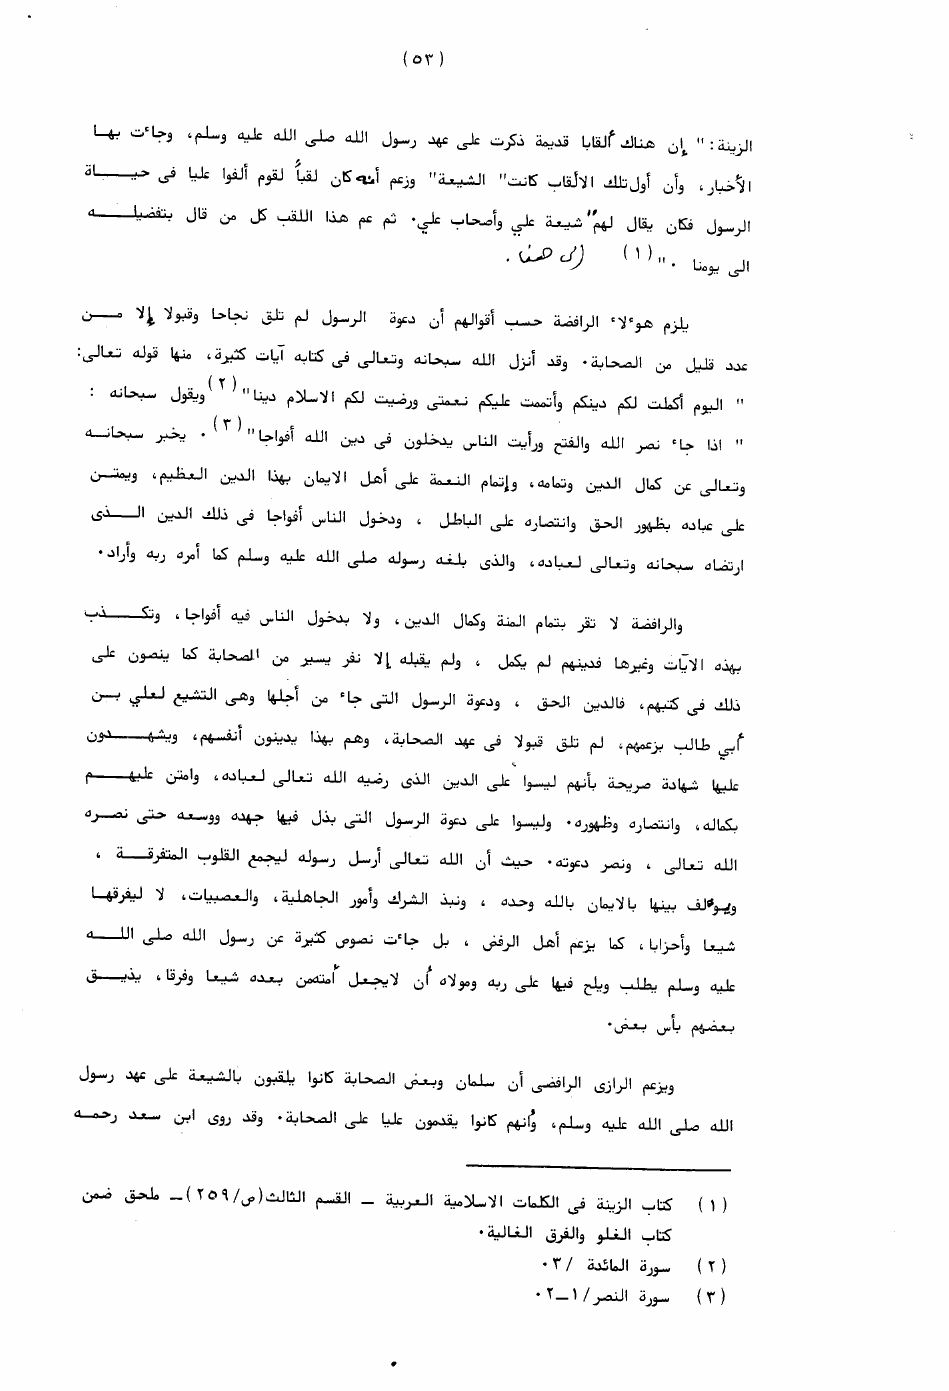 (٥٣)
الزينة: " إن هناك ألقابا قديمة ذكرت على عهد رسول الله صلى الله عليه وسلم، وجاءت بها
الأخبار، وأن أول تلك الالقاب كانت" الشيعة" وزعم أنه كان لقباً لقوم ألفوا عليا فى حياة
الرسول فكان يقال لهم" شيعة علي وأصحاب علي. ثم عم هذا اللقب كل من قال بتفضيله
الى يومنا . "(١) إلى هنا .
يلزم هوءلاء الرافضة حسب أقوالهم أن دعوة الرسول لم تلق نجاحا وقبولا إلا من
عدد قليل من الصحابة. وقد أنزل الله سبحانه وتعالى فى كتابه آيات كثيرة، منها قوله تعالى:
" اليوم أكملت لكم دينكم وأتممت عليكم نعمتى ورضيت لكم الاسلام دينا"(٢) ويقول سبحانه :
" اذا جاء نصر الله والفتح ورأيت الناس يدخلون فى دين الله أفواجا"(٣) . يخبر سبحانه
وتعالى عن كمال الدين وتمامه، وإتمام النعمة على أهل الايمان بهذا الدين العظيم، ويمتن
على عباده بظهور الحق وانتصاره على الباطل ، ودخول الناس أفواجا فى ذلك الدين الذى
ارتضاه سبحانه وتعالى لعباده، والذى بلغه رسوله صلى الله عليه وسلم كما أمره ربه وأراد.
والرافضة لا تقر بتمام المنة وكمال الدين، ولا بدخول الناس فيه أفواجا، وتكذب
بهذه الآيات وغيرها فدينهم لم يكمل ، ولم يقبله إلا نفر يسير من الصحابة كما ينصون على
ذلك فى كتبهم، فالدين الحق ، ودعوة الرسول التى جاء من أجلها وهى التشيع لعلي بن
أبي طالب بزعمهم، لم تلق قبولا فى عهد الصحابة، وهم بهذا يدينون أنفسهم، ويشهدون
عليها شهادة صريحة بأنهم ليسوا على الدين الذى رضيه الله تعالى لعباده، وامتن عليهم
بكماله، وانتصاره وظهوره. وليسوا على دعوة الرسول التى بذل فيها جهده ووسعه حتى نصره
الله تعالى ، ونصر دعوته. حيث أن الله تعالى أرسل رسوله ليجمع القلوب المتفرقة ،
ويوءلف بينها بالايمان بالله وحده ، ونبذ الشرك وأمور الجاهلية، والعصبيات، لا ليفرقها
شيعا وأحزابا، كما يزعم أهل الرفض ، بل جاءت نصوص كثيرة عن رسول الله صلى الله
عليه وسلم يطلب ويلح فيها على ربه ومولاه أن لايجعل أمته من بعده شيعا وفرقا، يذيق
بعضهم بأس بعض.
ويزعم الرازى الرافضى أن سلمان وبعض الصحابة كانوا يلقبون بالشيعة على عهد رسول
الله صلى الله عليه وسلم، وأنهم كانوا يقدمون عليا على الصحابة. وقد روى ابن سعد رحمه
(١) كتاب الزينة فى الكلمات الاسلامية العربية ـ القسم الثالث(ص/٢٥٩)ـ ملحق ضمن
كتاب الغلو والفرق الغالية.
(٢) سورة المائدة /٣.
(٣) سورة النصر/١ـ٢.